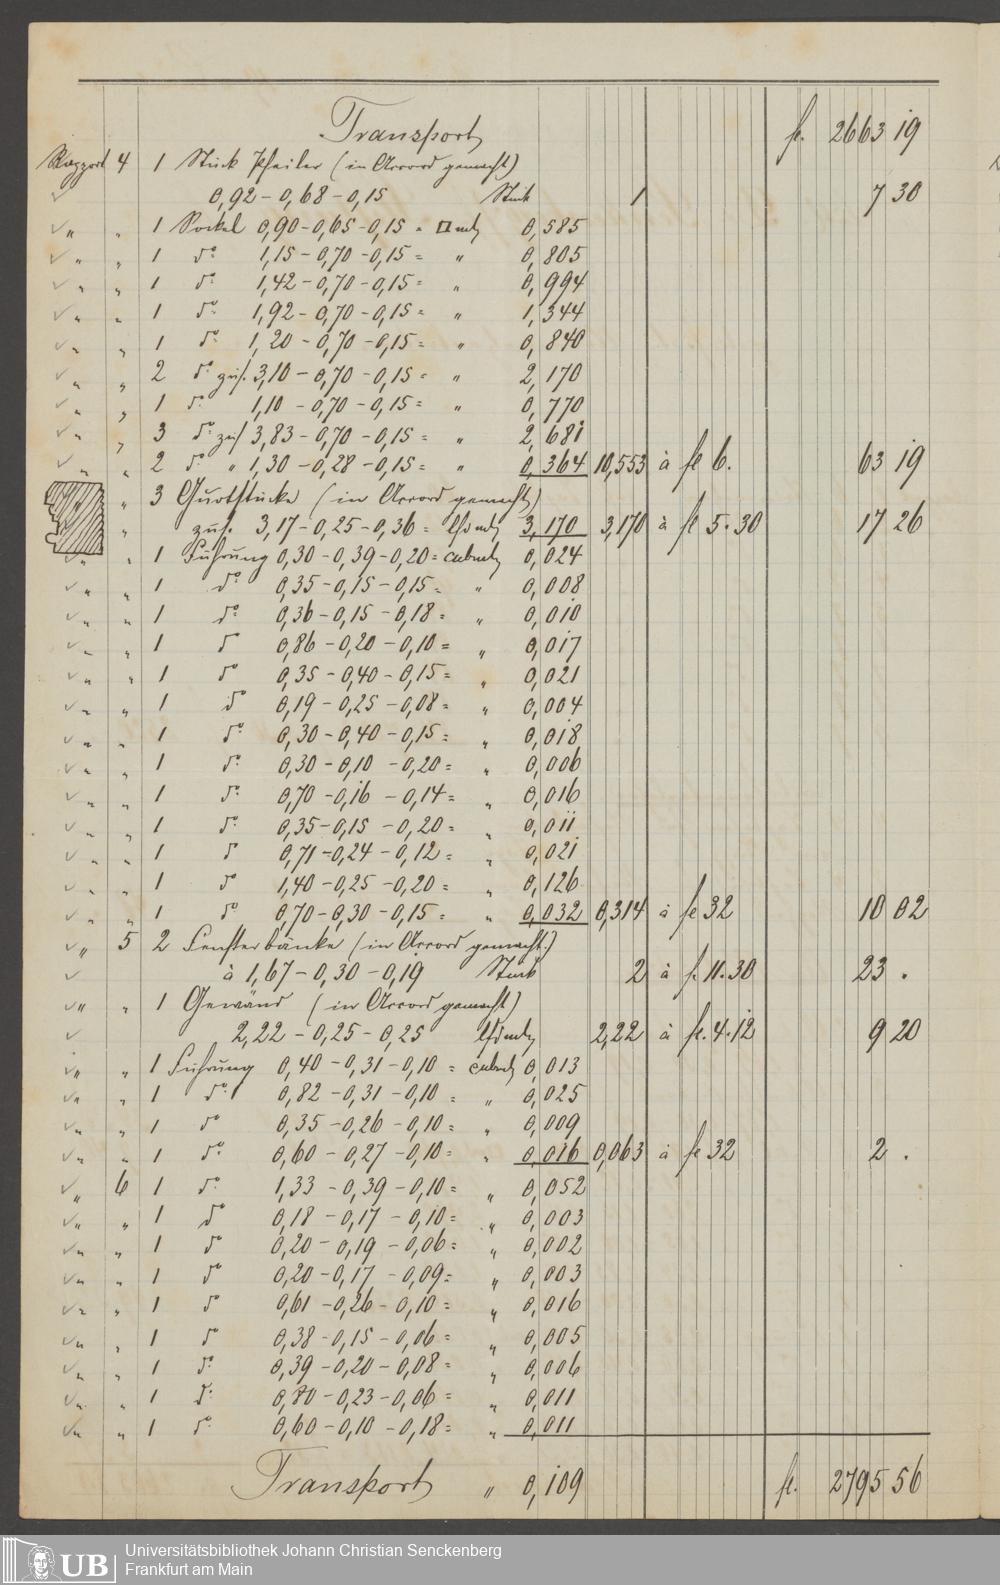 Transport fl. 2663 19
Rapport 4 1 Stück Pfeiler (in Accord gemacht)
0,92 - 0,68 - 0,15 Stück 1 7 30
" " 1 Sockel 0,90 - 0,65 - 0,15 = □mt 0,585
" " 1 do 1,15 - 0,70 - 0,15 = " 0,805
" " 1 do 1,42 - 0,70 - 0,15 = " 0,994
" " 1 do 1,92 - 0,70 - 0,15 = " 1,344
" " 1 do 1,20 - 0,70 - 0,15 = " 0,840
" " 2 do zus. 3,10 - 0,70 - 0,15 = " 2,170
" " 1 do 1,10 - 0,70 - 0,15 = " 0,770
" " 3 do zus 3,83 - 0,70 - 0,15 = " 2,681
" " 2 do " 1,30 - 0,28 - 0,15 = " 0,364 10,553 à fl 6. 63 19
" 3 Gurtstücke (in Accord gemacht)
" zus. 3,17 - 0,25 - 0,36 = lfdmt 3,170 3,170 à fl 5.30 17 26
" " 1 Führung 0,30 - 0,39 - 0,20 = cubmt 0,024
" " 1 do 0,35 - 0,15 - 0,15 = " 0,008
" " 1 do 0,36 - 0,15 - 0,18 = " 0,010
" " 1 do 0,86 - 0,20 - 0,10 = " 0,017
" " 1 do 0,35 - 0,40 - 0,15 = " 0,021
" " 1 do 0,19 - 0,25 - 0,08 = " 0,004
" " 1 do 0,30 - 0,40 - 0,15 = " 0,018
" " 1 do 0,30 - 0,10 - 0,20 = " 0,006
" " 1 do 0,70 - 0,16 - 0,14 = " 0,016
" " 1 do 0,35 - 0,15 - 0,20 = " 0,011
" " 1 do 0,71 - 0,24 - 0,12 = " 0,021
" " 1 do 1,40 - 0,25 - 0,20 = " 0,126
" " 1 do 0,70 - 0,30 - 0,15 = " 0,032 0,314 à fl 32 10 02
" 5 2 Fensterbänke (in Accord gemacht)
à 1,67 - 0,30 - 0,19 Stück 2 à f. 11.30 23 .
" " 1 Gewänd (in Accord gemacht)
2,22 - 0,25 - 0,25 lfdmt 2,22 à fl. 4.12 9 20
" " 1 Führung 0,40 - 0,31 - 0,10 = cubmt 0,013
" " 1 do 0,82 - 0,31 - 0,10 = " 0,025
" " 1 do 0,35 - 0,26 - 0,10 = " 0,009
" " 1 do 0,60 - 0,27 - 0,10 = " 0,016 0,063 à fl 32 2 .
" 6 1 do 1,33 - 0,39 - 0,10 = " 0,052
" " 1 do 0,18 - 0,17 - 0,10 = " 0,003
" " 1 do 0,20 - 0,19 - 0,06 = " 0,002
" " 1 do 0,20 - 0,17 - 0,09 = " 0,003
" " 1 do 0,61 - 0,26 - 0,10 = " 0,016
" " 1 do 0,38 - 0,15 - 0,06 = " 0,005
" " 1 do 0,39 - 0,20 - 0,08 = " 0,006
" " 1 do 0,80 - 0,23 - 0,06 = " 0,011
" " 1 do 0,60 - 0,10 - 0,18 = " 0,011
Transport " 0,109 fl. 2795 56
UB Universitätsbibliothek Johann Christian Senckenberg
Frankfurt am Main